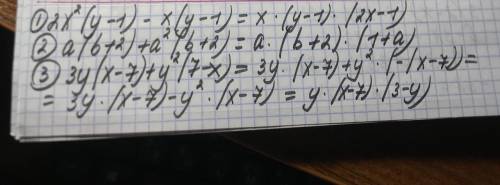 ① 2x²(y-1) - x(y-1) = x · (y-1) · (2x-1)
② a(b+2)+a²(b+2) = a · (b+2) · (1+a)
③ 3y(x-7)+y²(7-x) = 3y · (x-7)+y² · (-(x-7)) =
= 3y · (x-7) - y² · (x-7) = y · (x-7) · (3-y)